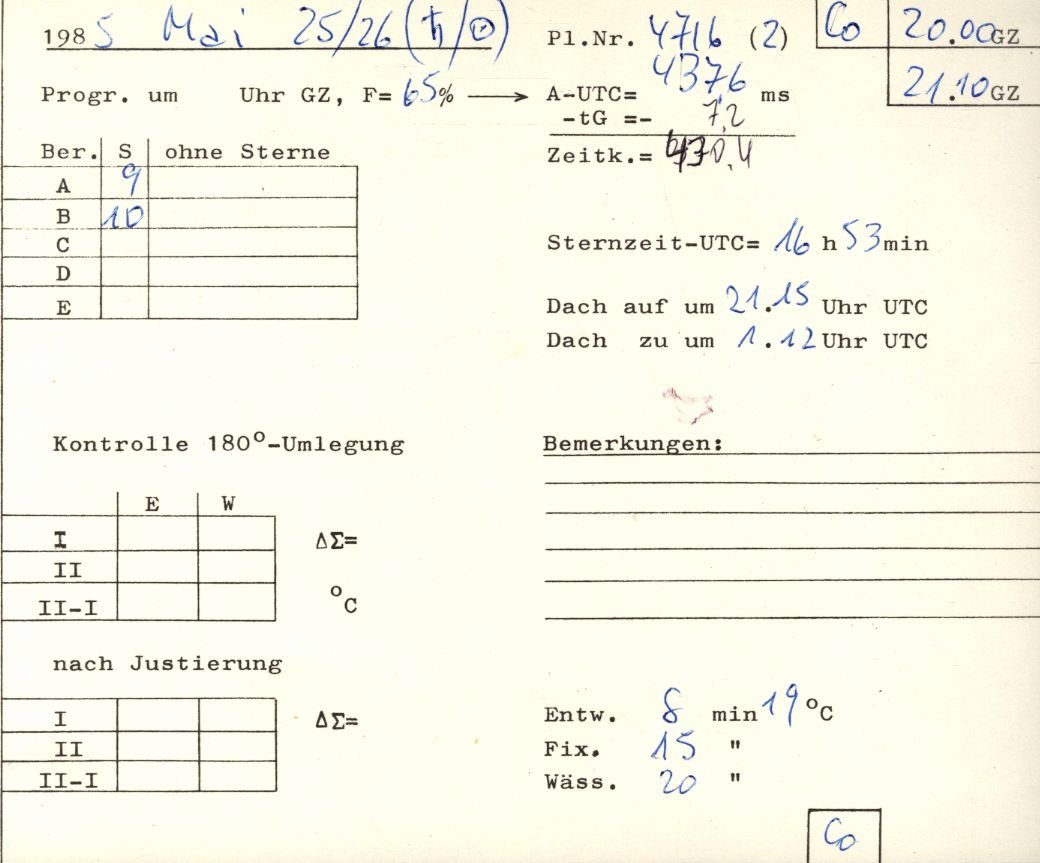 1985 Mai 25/26 (♄/☉) Pl.Nr. 4716 (2) Co 20.00 GZ
21.10 GZ
Progr. um Uhr GZ, F= 65% → A-UTC= 437,6 ms
-tG =- 7,2
Zeitk.= 430,4
Ber. S ohne Sterne
A 9
B 10
C
D
E
Sternzeit-UTC= 16 h 53 min
Dach auf um 21.15 Uhr UTC
Dach zu um 1.12 Uhr UTC
Kontrolle 180°-Umlegung
E W
I ΔΣ=
II
II-I °C
Bemerkungen:
nach Justierung
I ΔΣ=
II
II-I
Entw. 8 min 19 °C
Fix. 15 "
Wäss. 20 "
Co